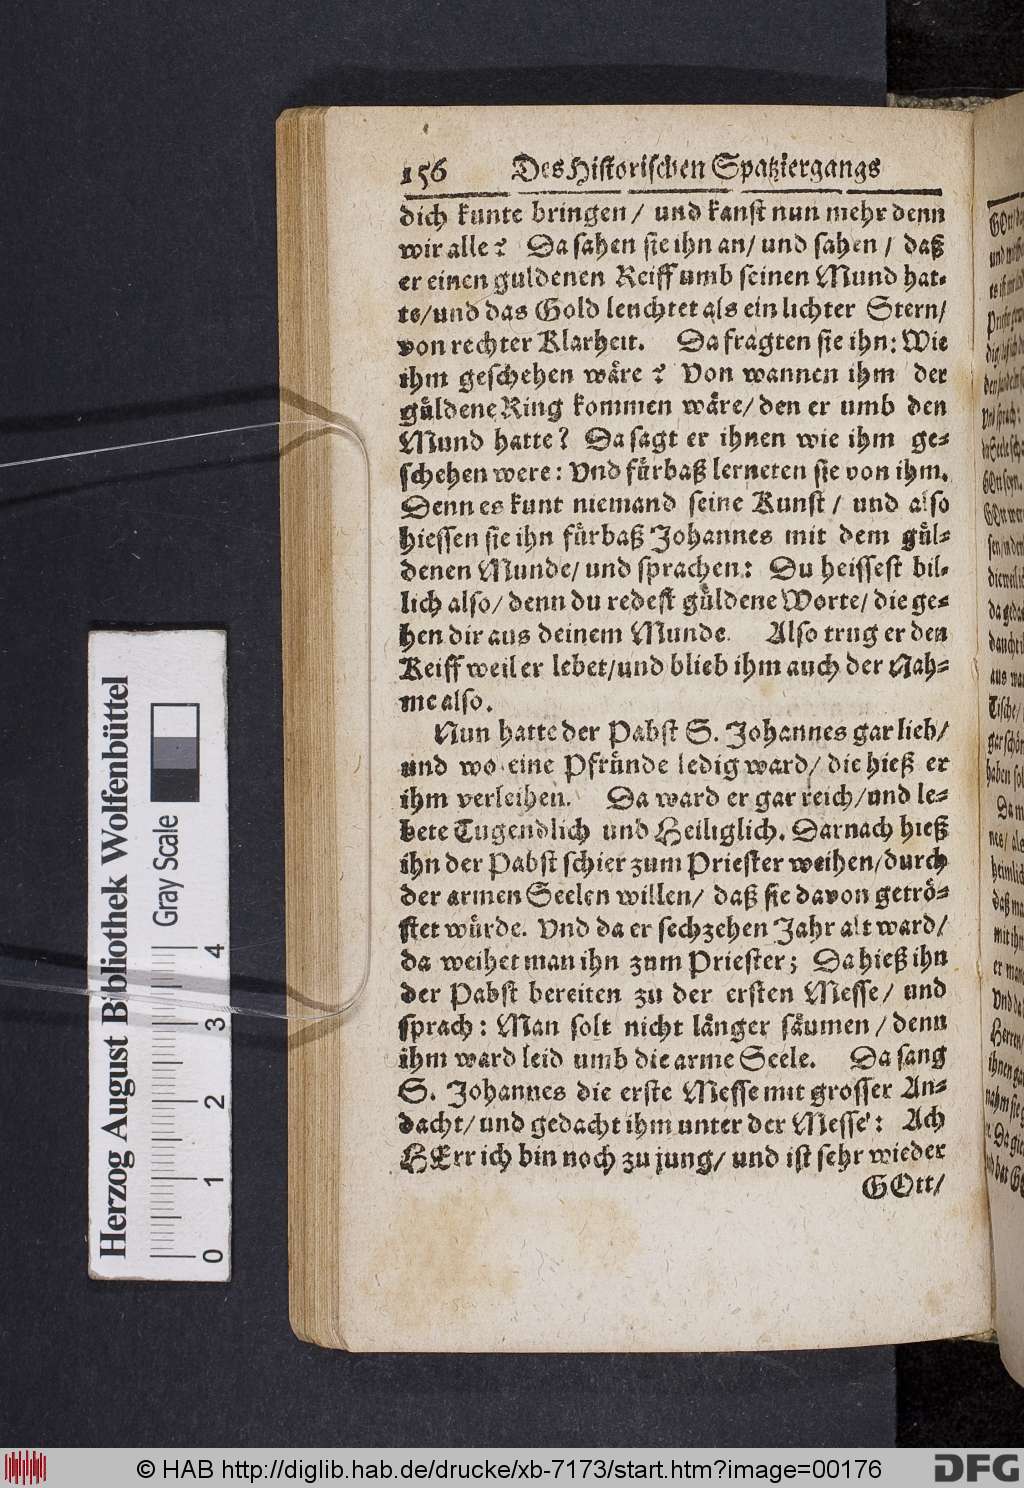 156 Des Historischen Spatziergangs
dich kunte bringen / und kanst nun mehr denn
wir alle? Da sahen sie ihn an / und sahen / daß
er einen guldenen Reiff umb seinen Mund hat-
te / und das Gold leuchtet als ein lichter Stern /
von rechter Klarheit. Da fragten sie ihn: Wie
ihm geschehen wäre? Von wannen ihm der
güldene Ring kommen wäre / den er umb den
Mund hatte? Da sagt er ihnen wie ihm ge-
schehen were: Vnd fürbaß lerneten sie von ihm.
Denn es kunt niemand seine Kunst / und also
hiessen sie ihn fürbaß Johannes mit dem gül-
denen Munde / und sprachen: Du heissest bil-
lich also / denn du redest güldene Worte / die ge-
hen dir aus deinem Munde. Also trug er den
Reiff weil er lebet / und blieb ihm auch der Nah-
me also.
Nun hatte der Pabst S. Johannes gar lieb /
und wo eine Pfründe ledig ward / die hieß er
ihm verleihen. Da ward er gar reich / und le-
bete Tugendlich und Heiliglich. Darnach hieß
ihn der Pabst schier zum Priester weihen / durch
der armen Seelen willen / daß sie davon getrö-
stet würde. Vnd da er sechzehen Jahr alt ward /
da weihet man ihn zum Priester; Da hieß ihn
der Pabst bereiten zu der ersten Messe / und
sprach: Man solt nicht länger säumen / denn
ihm ward leid umb die arme Seele. Da sang
S. Johannes die erste Messe mit grosser An-
dacht / und gedacht ihm unter der Messe: Ach
HErr ich bin noch zu jung / und ist sehr wieder
GOtt /
Herzog August Bibliothek Wolfenbüttel
Gray Scale
0 1 2 3 4
© HAB http://diglib.hab.de/drucke/xb-7173/start.htm?image=00176
DFG